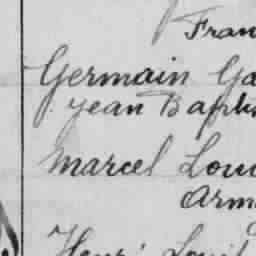 Fran
Germain Ga
Jean Baptis
Marcel Loui
Arm
Henri Louis